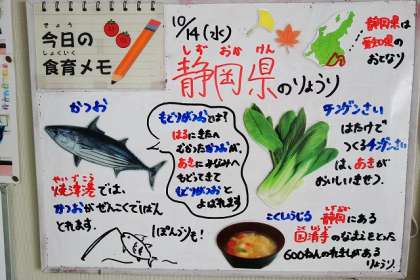 きょう
今日の
しょくいく
食育メモ
10/14(水)
しず おか けん
静岡県のりょうり
静岡県は
愛知県の
おとなり
かつお
もどりがつおとは?
はるにきたへ
むかったかつおが、
あきにみなみへ
もどってきて
もどりがつおと
よばれます
チンゲンさい
はたけで
つくるチンゲンさい
は、あきが
おいしいきせつ。
やいづこう
焼津港では、
かつおがぜんこくで1ばん
とれます。
1ぽんづりも!
こくしょうじる
静岡にある
国清寺の
なまえをとった
600ねんのれきしがある
りょうり